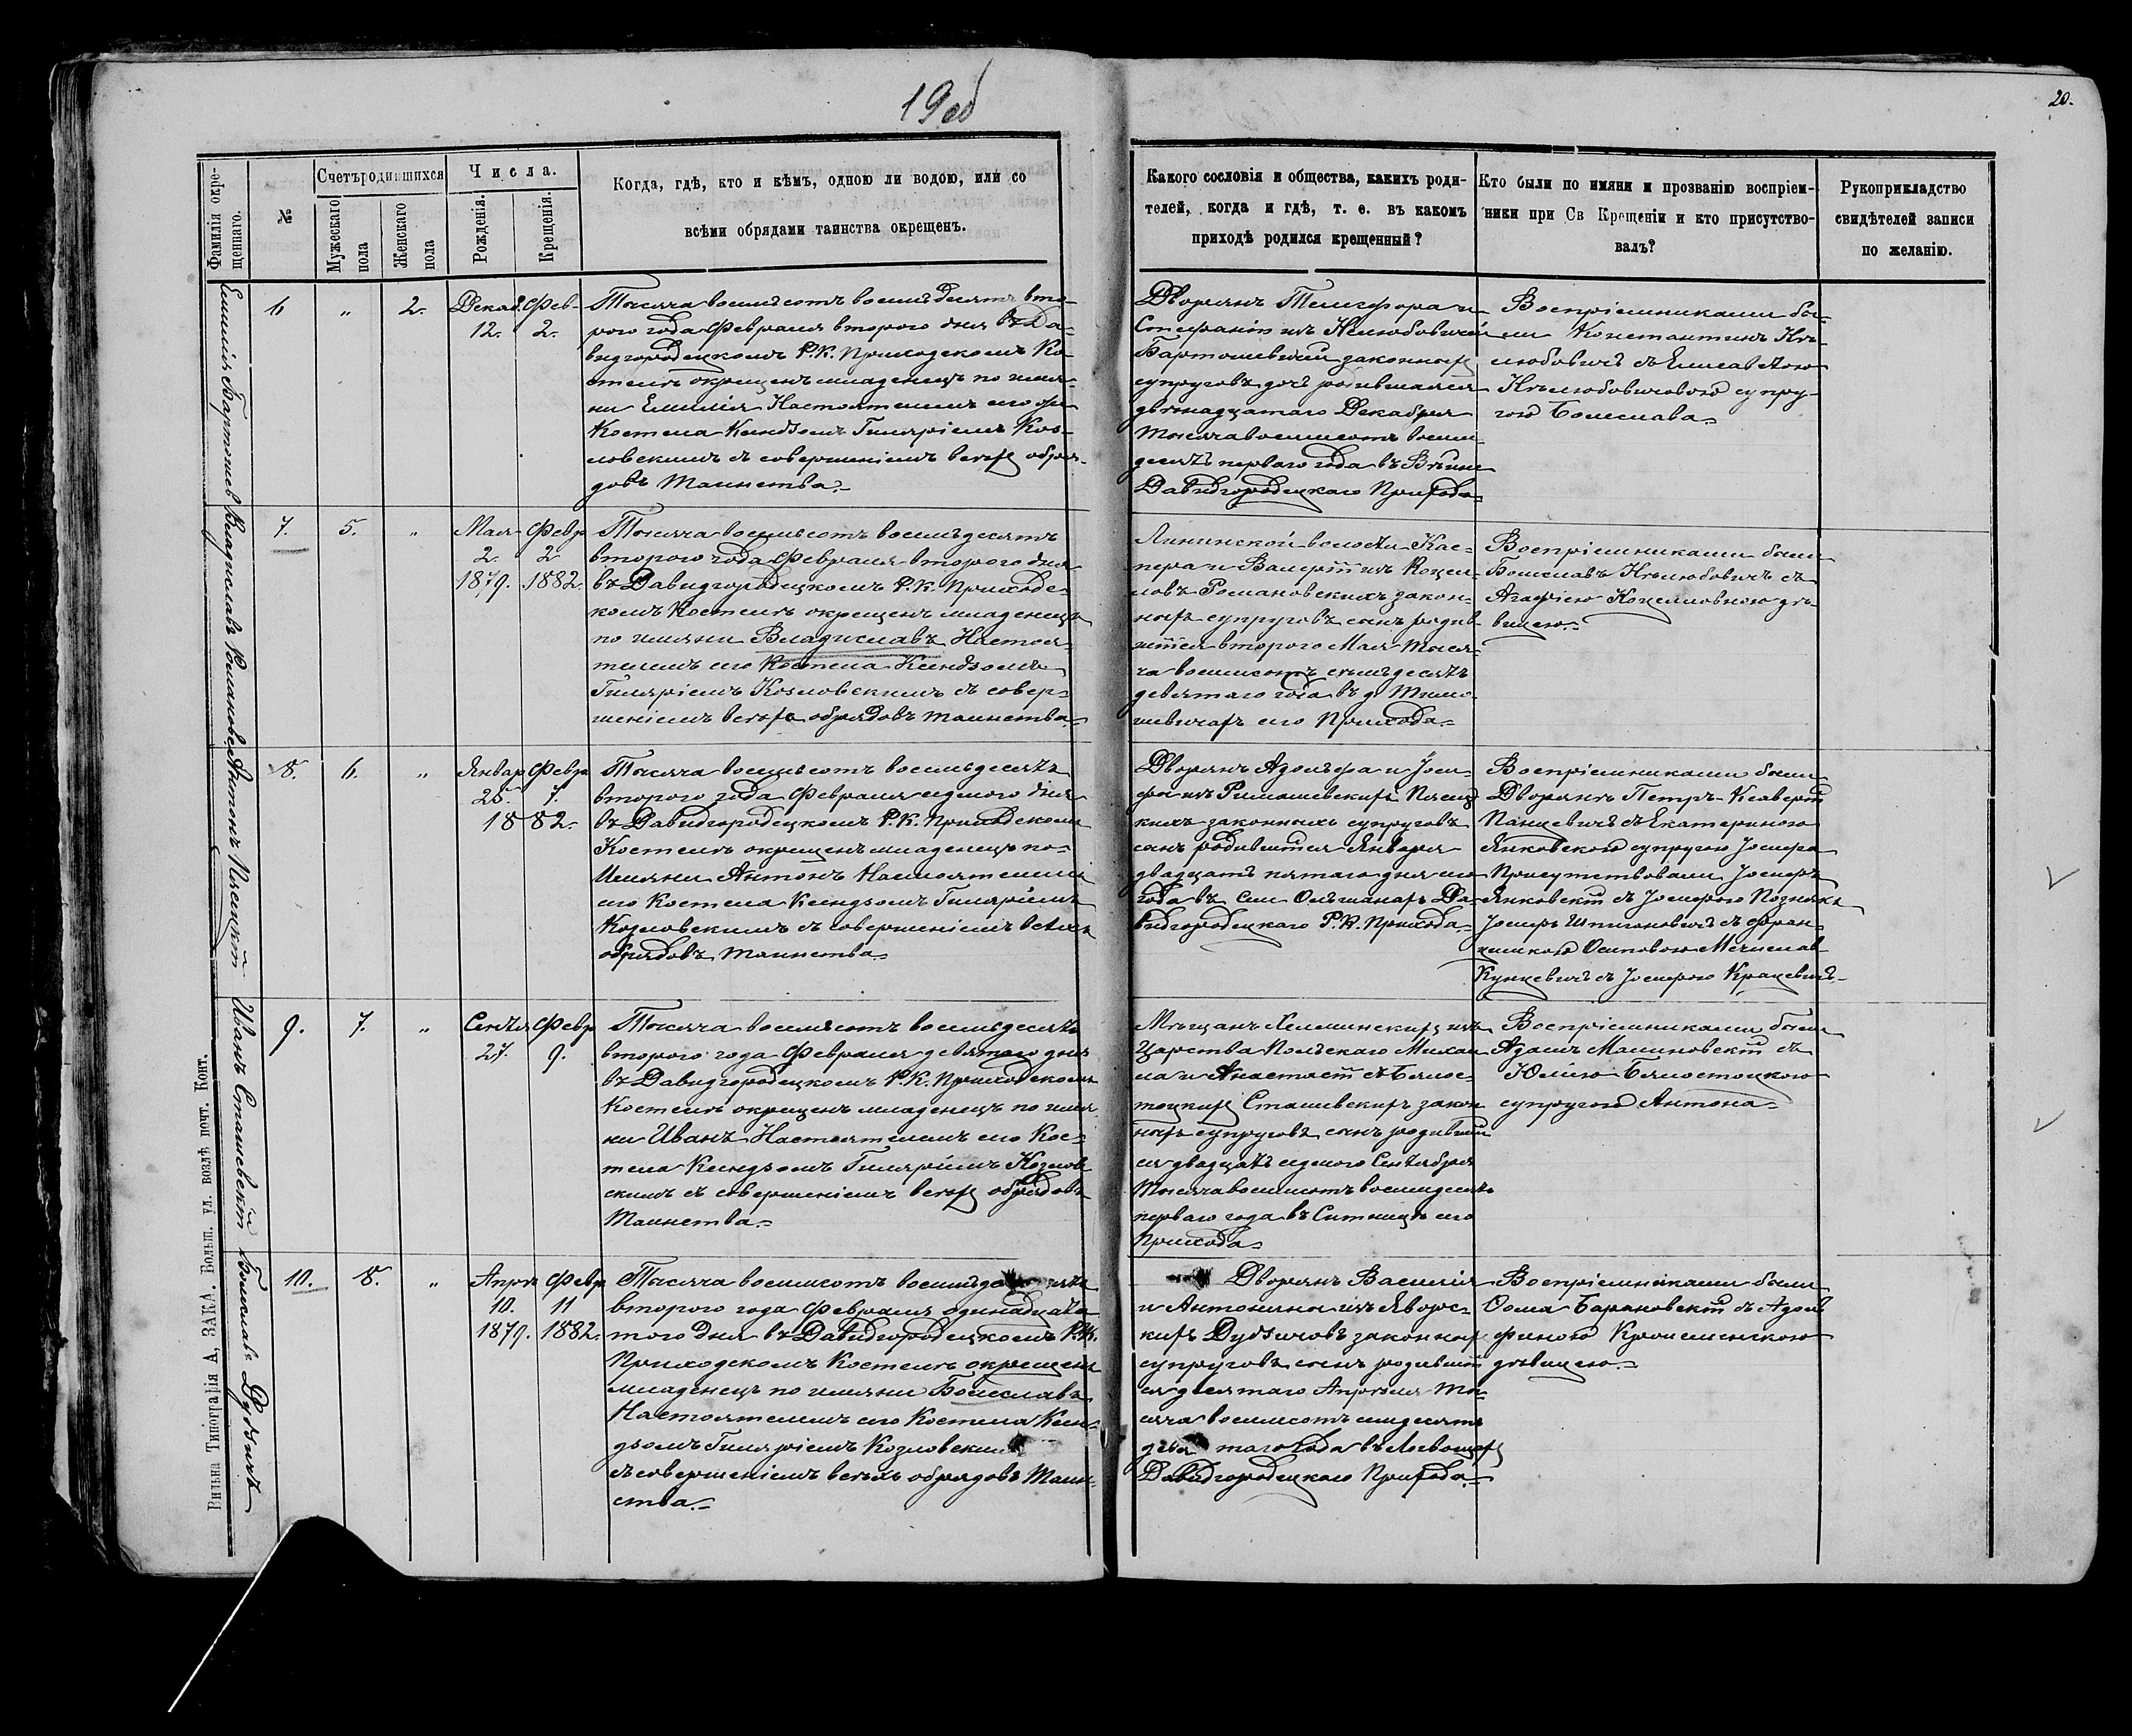 19 об
20.
Фамилія окре-
щеннаго.
№
Счетъ родившихся
Мужескаго
пола
Женскаго
пола
Числа.
Рожденія.
Крещенія.
Когда, гдѣ, кто и кѣмъ, одною ли водою, или со
всѣми обрядами таинства окрещенъ.
Какого сословія и общества, какихъ роди-
телей, когда и гдѣ, т. е. въ какомъ
приходѣ родился крещенный?
Кто были по имяни и прозванію воспріем-
ники при Св Крещеніи и кто присутство-
валъ?
Рукоприкладство
свидѣтелей записи
по желанію.
Емилія Бартошев
6
"
2.
Декаб. Фев-
12. 2.
Тысяча восемьсотъ восемьдесятъ вто-
рого года Февраля второго дня въ Да-
видгородецкомъ Р.К. Приходскомъ Ко-
стелѣ окрещенъ младенецъ по имя-
ни Емилія Настоятелемъ его же
Костела Ксендзомъ Гиляріемъ Коз-
ловскимъ съ совершеніемъ всѣхъ обря-
довъ Таинства.
Дворянъ Телесфора и
Стефаніи изъ Нелюбовичей
Бартошевичей законныхъ
супруговъ дочь родившаяся
двѣнадцатаго Декабря
тысяча восемьсотъ восемь-
десятъ перваго года въ
Давидгородецкаго Прихода
Воспріемниками бы-
ли Константинъ Не-
любовичъ съ Елисаветою
Нѣлюбовичовою супру-
гою Болеслава.
Владиславъ Романовс
7.
5.
"
Мая Февр
2. 2
1879. 1882.
Тысяча восемьсотъ восемьдесятъ
второго года Февраля второго дня
въ Давидгородецкомъ Р.К. Приход-
комъ Костелѣ окрещенъ младенецъ
по имяни Владиславъ Настоя-
телемъ его Костела Ксендзомъ
Гиляріемъ Козловскимъ съ совер-
шеніемъ всѣхъ обрядовъ таинства.
волости Кас-
пера и Валеріи изъ
Романовскихъ закон-
ныхъ супруговъ сынъ родив
шійся второго Мая тыся-
ча восемьсотъ семьдесятъ
девятаго года въ д.
его Прихода
Воспріемниками были
Болеславъ Нѣлюбовичъ съ
Агафіею дѣ-
вицею.
Антонъ Плясецкій
8.
6.
"
Январ Февр
25. 7.
1882.
Тысяча восемьсотъ восемьдесятъ
второго года Февраля седмого дня
въ Давидгородецкомъ Р.К. Приходскомъ
Костелѣ окрещенъ младенецъ по
Имяни Антонъ Настоятелемъ
его Костела Ксендзомъ Гиляріемъ
Козловскимъ съ совершеніемъ всѣхъ
обрядовъ таинства
Дворянъ Адольфа и Іозе-
фы изъ Римашевскихъ Пляец
кихъ законныхъ супруговъ
сынъ родившійся Января
двадцать пятаго дня его
года въ Ольшанахъ Да-
видгородецкаго Р.К. Прихода
Воспріемниками были
Дворянъ Петръ-Ксаверій
съ Екатериною
Янковскою супругою Іозефа
Присутствовали Іозефъ
Янковскій съ Іозефою
Іозефъ съ Фран-
цишкою Осиповою Мечиславъ
Кунцевичъ съ Іозефою
Иванъ Сташевскій
9.
7.
"
Сентя Февр
27. 9.
Тысяча восемьсотъ восемьдесятъ
второго года Февраля девятаго дня
въ Давидгородецкомъ Р.К. Приходскомъ
Костелѣ окрещенъ младенецъ по имя
ни Иванъ Настоятелемъ его Кос-
тела Ксендзомъ Гиляріемъ Козлов-
скимъ съ совершеніемъ всѣхъ обрядовъ
Таинства
Мѣщанъ изъ
Царства Польскаго Михаи
ла и Анастасіи съ Бялос-
тоцкихъ Сташевскихъ закон
ныхъ супруговъ сынъ родивший
ся двадцать седмого Сентября
Тысяча восемьсотъ восемьдесятъ
перваго года въ Ситницѣ его
Прихода
Воспріемниками были
Адамъ Малиновскій съ
Юліею Бялостоцкою
супругою Антона
Болеславъ Дубзичъ
10.
8.
"
Апрѣ Февр
10. 11
1879. 1882.
Тысяча восемьсотъ восемьде сятъ
второго года Февраля одинадцата
того дня въ Давидгородецкомъ Р.К.
Приходскомъ Костелѣ окрещенъ
младенецъ по имяни Болеславъ
Настоятелемъ его Костела Ксен-
дзомъ Гиляріемъ Козловским
съ совершеніемъ всѣхъ обрядовъ Таин-
ства.
Дворянъ Василія
и Антонины изъ Яворс-
кихъ законныхъ
супруговъ сынъ родивший
ся десятаго Апрѣля ты-
сяча восемьсотъ семдесятъ
девя таго года въ
Давидгородецкаго Прихода.
Воспріемниками были
Ѳома Барановскій съ Адоль
финою
дѣвицею.
Вильна Типографія А, ЗАКА. Больш. ул. возлѣ почт. Конт.